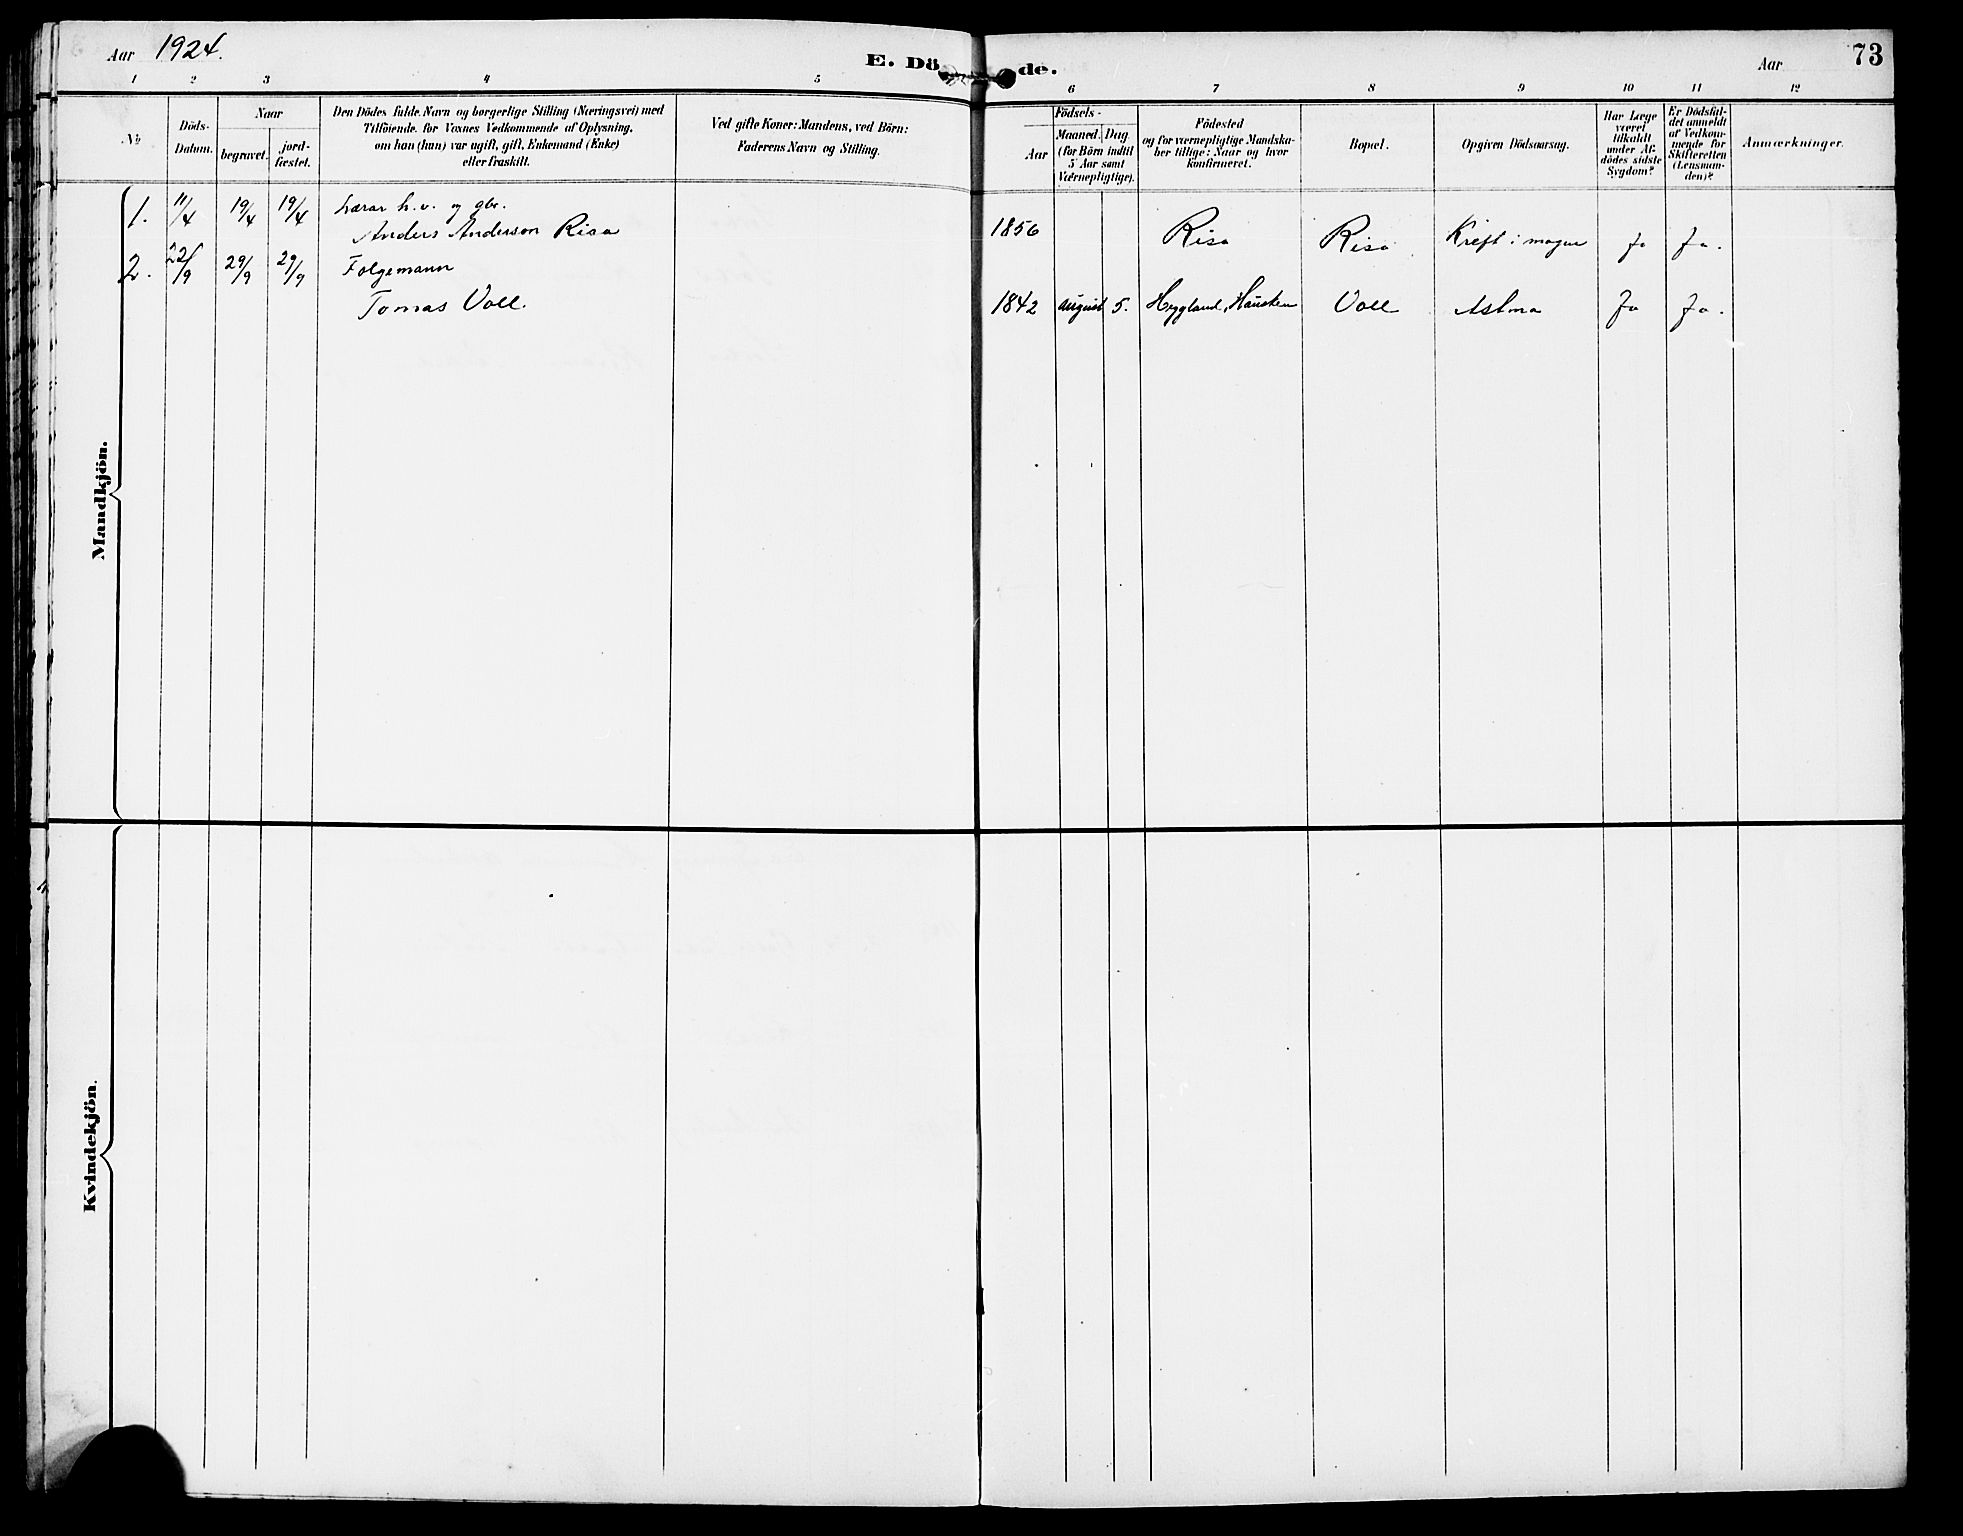 Aar 1924.
E. Döde.
Aar
73
1 2 3 4 5 6 7 8 9 10 11 12
No
Döds-
Datum.
Naar
begravet.
jord-
fæstet.
Den Dödes fulde Navn og borgerlige Stilling (Næringsvei) med
Tilföiende, for Voxnes Vedkommende af Oplysning,
om han (hun) var ugift, gift, Enkemand (Enke)
eller fraskilt.
Ved gifte Koner: Mandens, ved Börn:
Faderens Navn og Stilling.
Födsels-
Aar
Maaned. Dag.
(for Börn indtil
5 Aar samt
Værnepligtige).
Födested
og for værnepligtige Mandska-
ber tillige: Naar og hvor
konfirmeret.
Bopæl.
Opgiven Dödsaarsag.
Har Læge
været
tilkaldt
under Af-
dödes sidste
Sygdom?
Er Dödsfal-
det anmeldt
af Vedkom-
mende for
Skifteretten
(Lensman-
den)?
Anmærkninger.
Mandkjön.
1. 11/4 19/4 19/4 Lærar h.v. og gbr.
Anders Anderson Risa 1856 Risa Risa Kreft i magen ja ja.
2. 22/9 29/9 29/9 Folgemann
Tomas Voll. 1842 august 5. Hegglund, Hausken Voll Astma Ja Ja.
Kvindekjön.